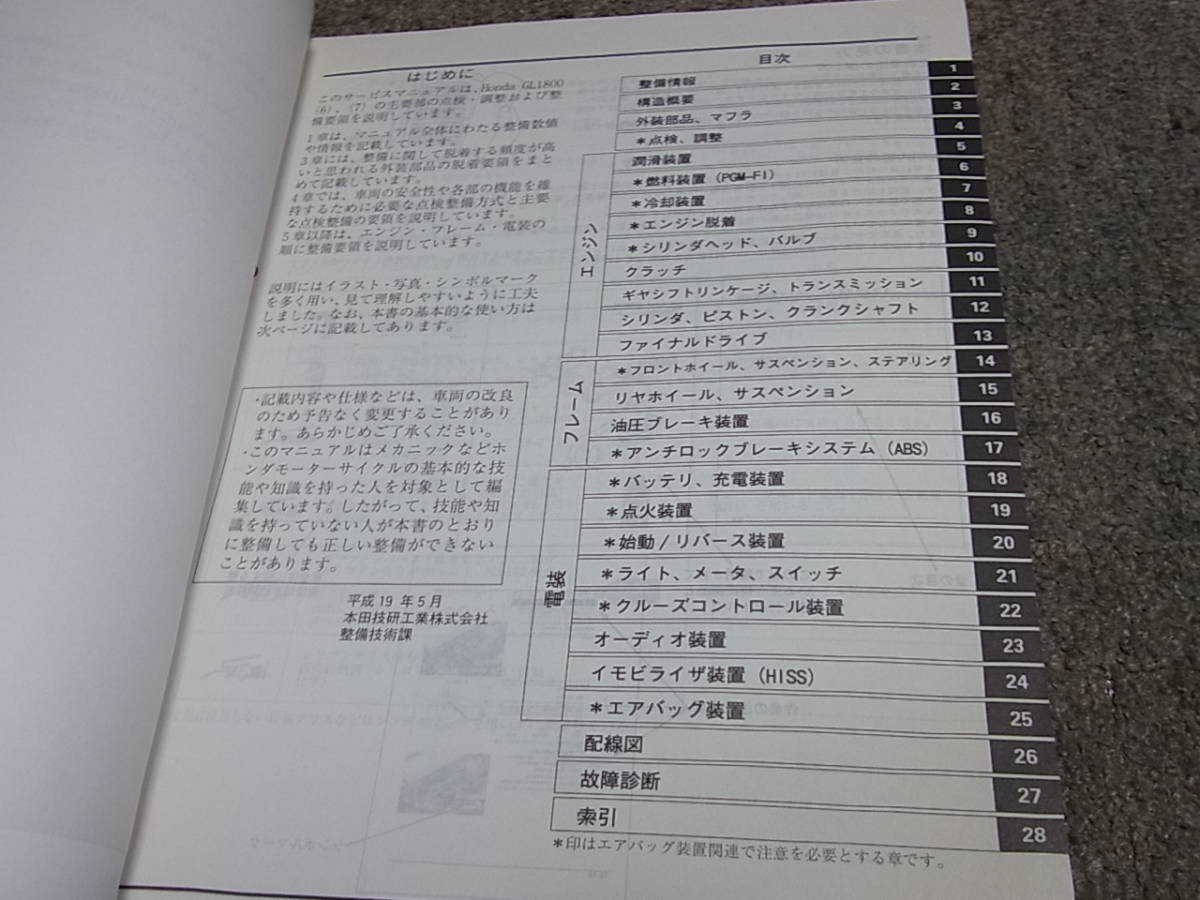 はじめに
このサービスマニュアルは、Honda GL1800
(6)、(7) の主要部の点検・調整および整
備要領を説明しています。
1章は、マニュアル全体にわたる整備数値
や情報を記載しています。
3章には、整備に関して脱着する頻度が高
いと思われる外装部品の脱着要領をまと
めて記載しています。
4章では、車両の安全性や各部の機能を維
持するために必要な点検整備方式と主要
な点検整備の要領を説明しています。
5章以降は、エンジン・フレーム・電装の
順に整備要領を説明しています。
説明にはイラスト・写真・シンボルマーク
を多く用い、見て理解しやすいように工夫
しました。なお、本書の基本的な使い方は
次ページに記載してあります。
・記載内容や仕様などは、車両の改良
のため予告なく変更することがあり
ます。あらかじめご了承ください。
・このマニュアルはメカニックなどホ
ンダモーターサイクルの基本的な技
能や知識を持った人を対象として編
集しています。したがって、技能や知
識を持っていない人が本書のとおり
に整備しても正しい整備ができない
ことがあります。
平成19年5月
本田技研工業株式会社
整備技術課
目次
整備情報 1
構造概要 2
外装部品、マフラ 3
*点検、調整 4
エンジン
潤滑装置 5
*燃料装置 (PGM-FI) 6
*冷却装置 7
*エンジン脱着 8
*シリンダヘッド、バルブ 9
クラッチ 10
ギヤシフトリンケージ、トランスミッション 11
シリンダ、ピストン、クランクシャフト 12
ファイナルドライブ 13
フレーム
*フロントホイール、サスペンション、ステアリング 14
リヤホイール、サスペンション 15
油圧ブレーキ装置 16
*アンチロックブレーキシステム (ABS) 17
電装
*バッテリ、充電装置 18
*点火装置 19
*始動/リバース装置 20
*ライト、メータ、スイッチ 21
*クルーズコントロール装置 22
オーディオ装置 23
イモビライザ装置 (HISS) 24
*エアバッグ装置 25
配線図 26
故障診断 27
索引 28
*印はエアバッグ装置関連で注意を必要とする章です。